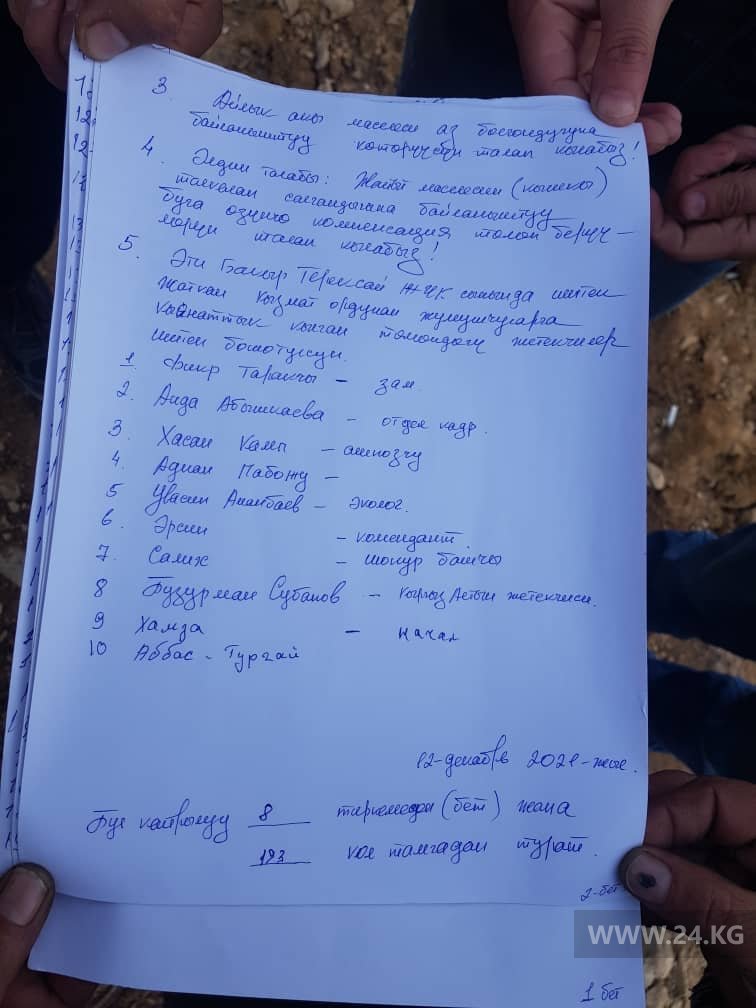 3. Айлык акы маселеси аз болгондугуна
байланыштуу которуусун талап кылабыз!
4. Элдин талабы: Жашыл маселесин (кышкы)
талкалап салгандыгына байланыштуу
буга өзүнчө компенсация төлөп берүү-
лөрүн талап кылабыз!
5. Эти Бакыр Терексай ЖЧК сынында иштеп
жаткан кызмат ордунан жумушчуларга
кыянаттык кылган төмөндөгү жетекчилер
иштен бошотулсун.
1. Фикр Таракчы – зам.
2. Аида Абышкаева – отдел кадр.
3. Хасан Калп – ашпозчу
4. Аднан Пабожу –
5 Увасин Асанбаев – Эколог.
6. Эрсин – комендант.
7. Салих – шопур башчы
8 Бузурман Субанов – кыргыз Алтын жетекчиси.
9 Хамза – начал
10 Аббас - Тургай
12-декабрь 2021-жыл.
Бул кайрылуу 8 тиркемеден (бет) жана
193 кол тамгадан турат.
2-бет
WWW.24.KG
1 бет